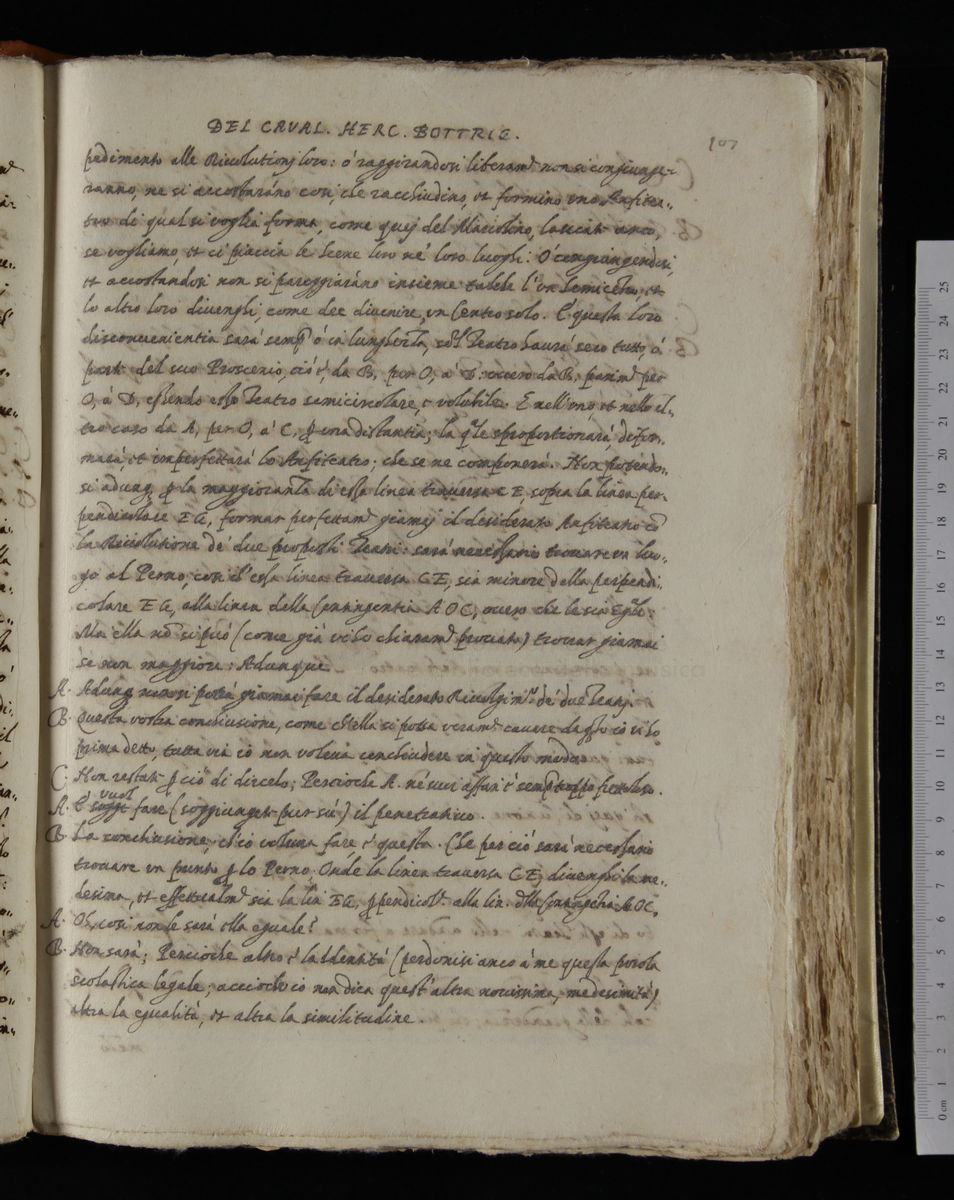 DEL CAVAL. HERC. BOTTRIG.
107
pedimento alle Rivolutionj loro: ò raggirandosi liberam.te non si congiunge-
ranno, ne si accostaranno così, che racchiudino, et formino uno Anfitea-
tro di qual si voglia forma, come quej del lasciate anco,
se vogliamo, et ci piaccia le Scene loro ne' loro luoghi: Ò congiungendosi,
et accostandosi non si pareggiaranno insieme talche l'un Semicentro, et
lo altro loro divenghi, come dee divenire, un Centro solo. E questa loro
disconvenientia sarà semp ò in lungheza, se'l Teatro haurà seco tutto, ò
parte del suo Proscenio, ciò è, da B, per O, a' D: overo da B, parim.te per
O, à D, essendo esso Teatro semicircolare, e volubile. E nell'uno, et nello al-
tro caso da A, per O, a' C, p una distantia; la q.le sproportionarà, defor-
marà, et imperfettarà lo Anfiteatro; che se ne componerà. Non potendo-
si adunq p la maggioranza di essa linea traversa C E, sopra la linea per-
pendicolare E G, formar perfettam.te giamaj il desiderato Anfiteatro cō
la Rivolutione de' due proposti Teatri: sarà necessario trovare un luo-
go al Perno, con il q.le essa linea traversa C E, sia minore della perpendi-
colare E G, alla linea della Contingentia A O C, overo che le sia Eg.le:
Ma ella nō si può (come già vi ho chiaram.te provato) trovar giamai
se non maggiore: Adunque
A. Adunq non si potrà giamai fare il desiderato Rivolgim.to de' due Teatrj.
B. Questa vostra conchiusione, come ch'ella si possa veram.te cavare da q.llo ch'io vi ho
prima detto, tutta via io non voleva conchiudere in questo modo.
C. Non restate p ciò di dircelo; Percioche A. ne' suoi affari è semp troppo frettoloso.
vuol
A. E' fare (soggiungete pur sù) il penetrativo.
B. La conchiusione, ch'io voleva fare è questa. Che per ciò sarà necessario
trovare un punto p lo Perno, Onde la linea traversa C E, divenghi la me-
desima, et effettualm.te sia la lin. E G, ppendicol.re alla lin. della Contingētia A O C.
A. Oh, così non le sarà ella eguale?
B. Non sarà; Percioche altro è la Identità (perdonisi anco à me questa parola
scolastica legale; accioche io non dica quest'altra novissima, medesimità)
altra la egualità, et altra la similitudine.